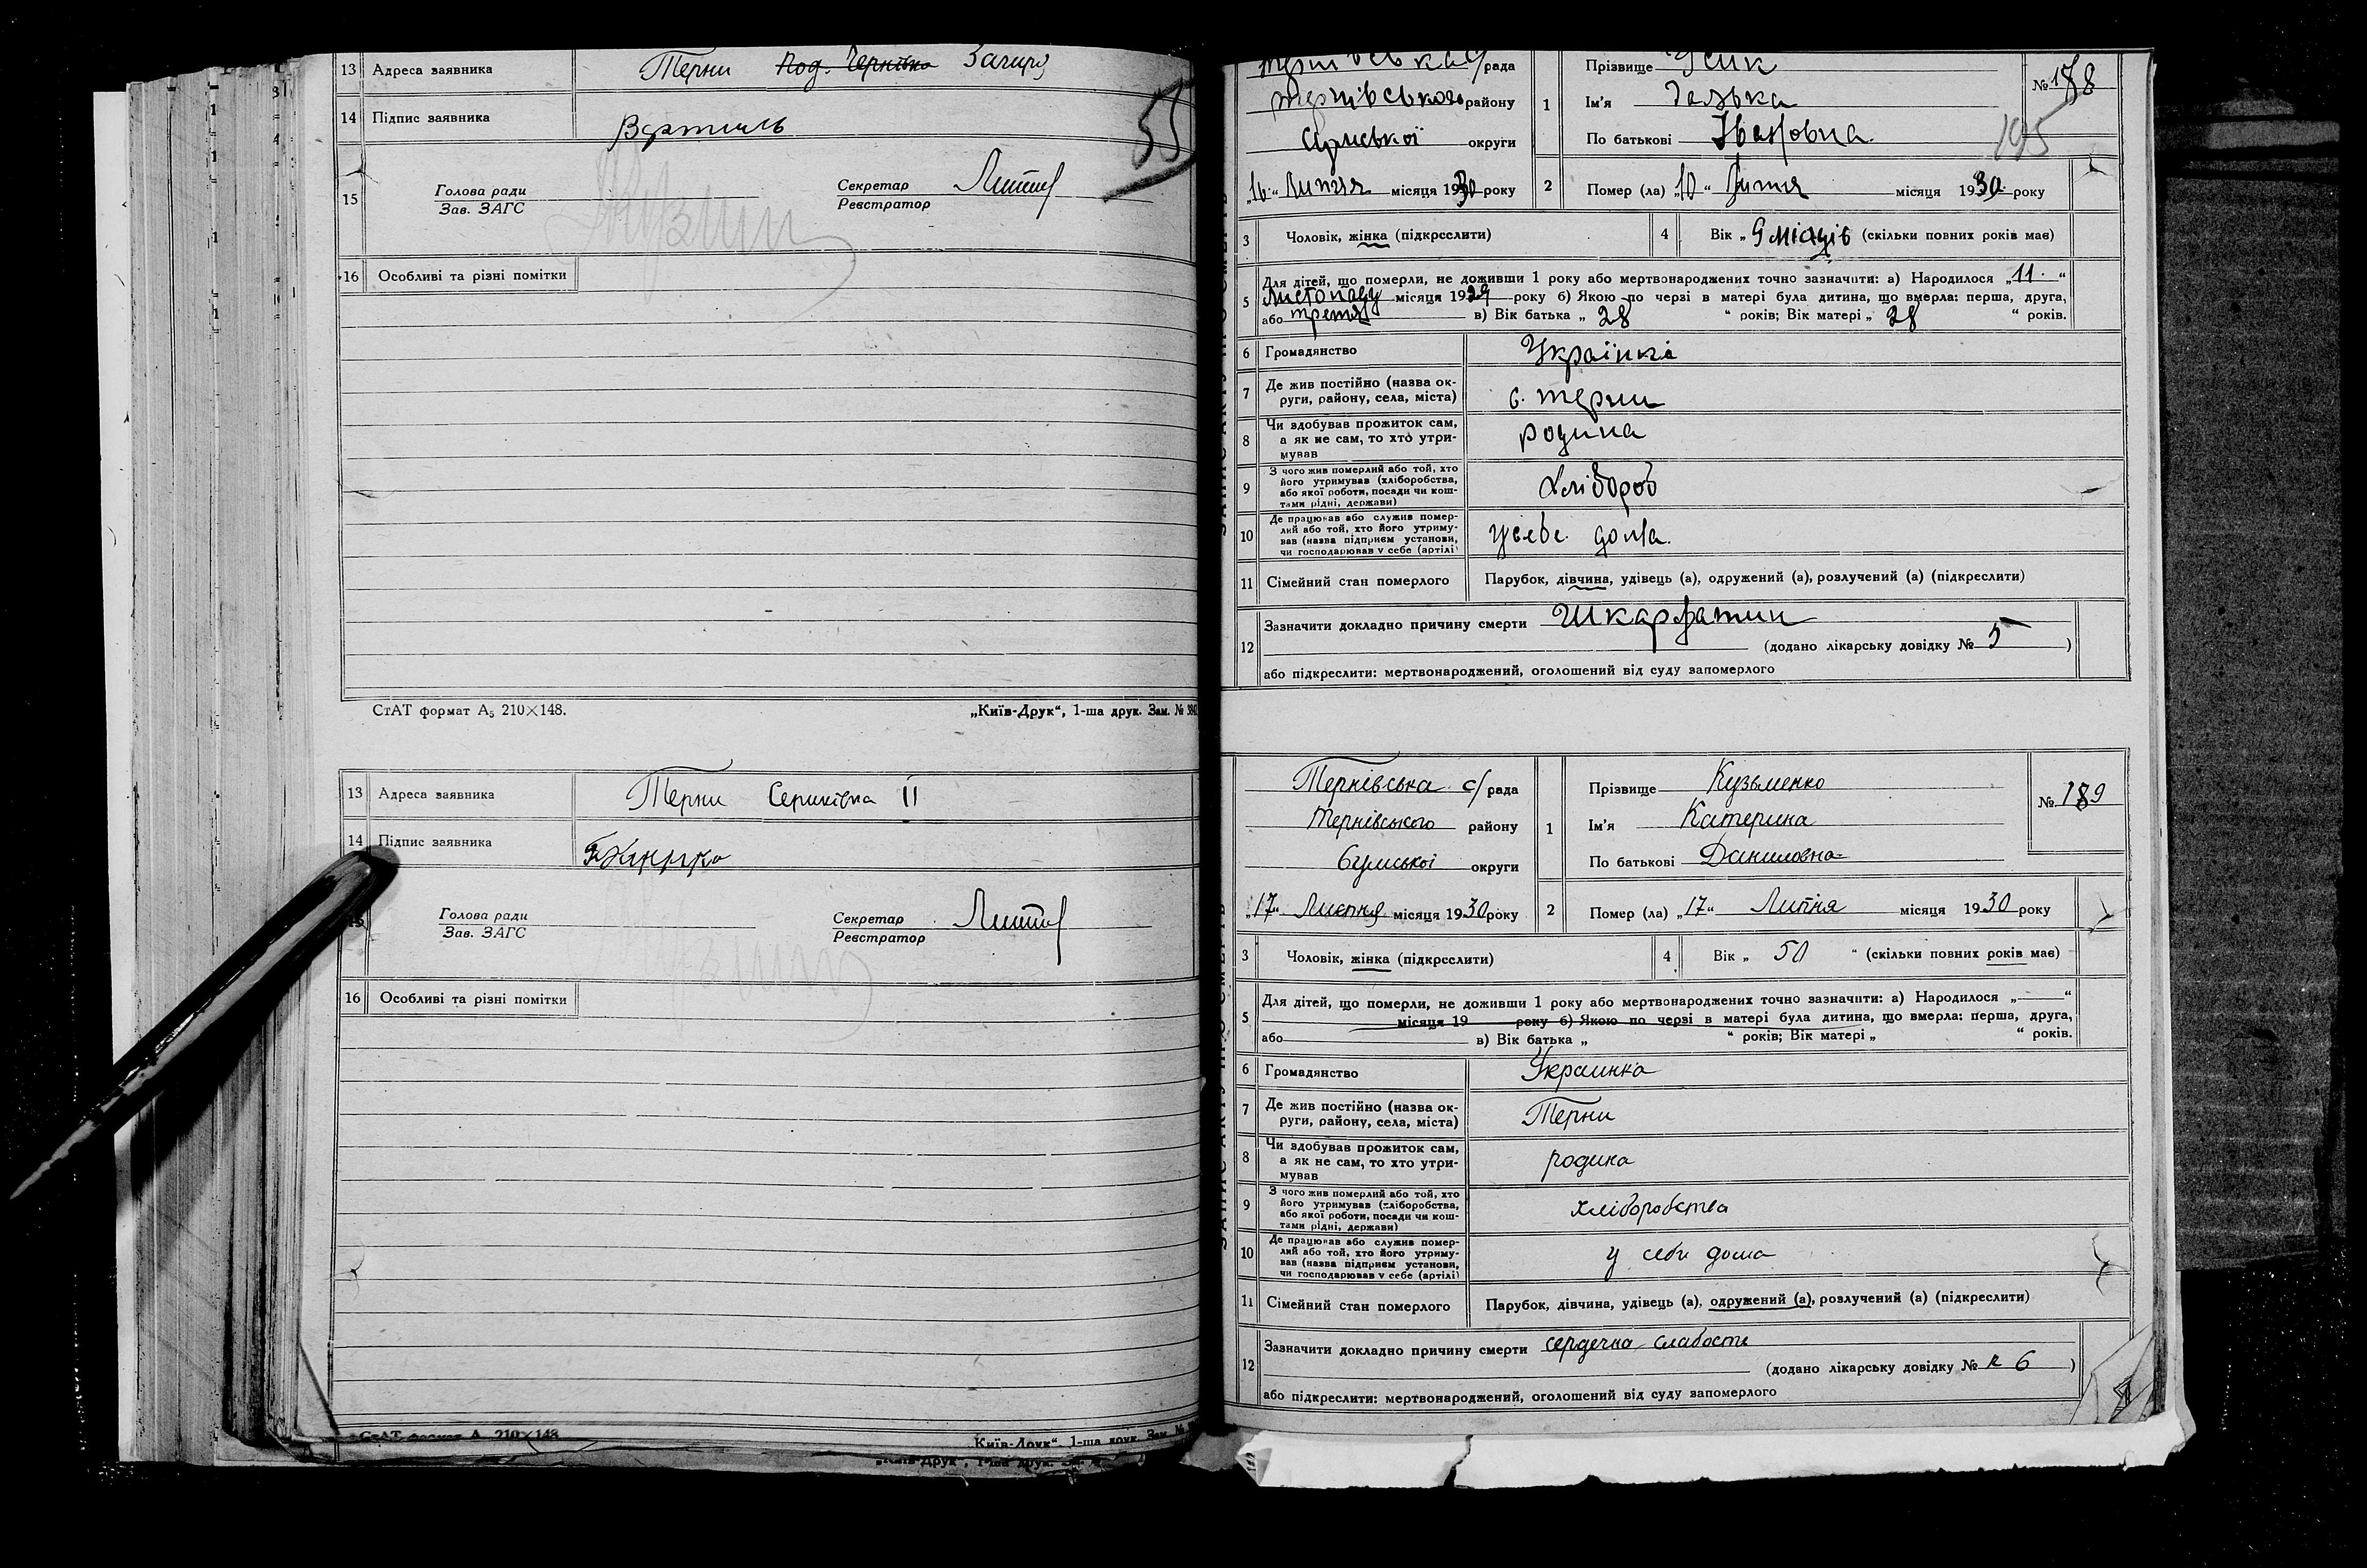 13 Адреса заявника Терни под. Чернівка
14 Підпис заявника
55
15 Голова ради Секретар
Зав. ЗАГС Реєстратор
16 Особливі та різні помітки
СтАТ формат А5 210×148. „Київ-Друк“, 1-ша друк. Зам. №
13 Адреса заявника Терни Сериківка II
14 Підпис заявника
15 Голова ради Секретар
Зав. ЗАГС Реєстратор
16 Особливі та різні помітки
СтАТ формат А5 210×148 „Київ-Друк“, 1-ша друк. Зам. №
„Київ-Друк“, 1-ша друк.
Тернівська с/рада
Тернівського району
Сумської округи
„16“ Липня місяця 1930 року
1 Прізвище Усик
Ім'я Галька
По батькові Івановна
№ 188
195
2 Помер (ла) „10“ Липня місяця 1930 року
3 Чоловік, жінка (підкреслити) 4 Вік „9 місяців (скільки повних років має)
5 Для дітей, що померли, не доживши 1 року або мертвонароджених точно зазначити: а) Народилося „11“
Листопаду місяця 1929 року б) Якою по черзі в матері була дитина, що вмерла: перша, друга,
або третя в) Вік батька „28“ років; Вік матері „28“ років.
6 Громадянство Українка
7 Де жив постійно (назва ок- с. Терни
руги, району, села, міста)
8 Чи здобував прожиток сам, родина
а як не сам, то хто утри-
мував
9 З чого жив померлий або той, хто хлібороб
його утримував (хліборобства,
або якої роботи, посади чи кош-
тами рідні, держави)
10 Де працював або служив помер- усебе дома.
лий або той, хто його утриму-
вав (назва підприєм установи,
чи господарював у себе (артілі)
11 Сімейний стан померлого Парубок, дівчина, удівець (а), одружений (а), розлучений (а) (підкреслити)
12 Зазначити докладно причину смерти Шкарлатин
(додано лікарську довідку № 5)
або підкреслити: мертвонароджений, оголошений від суду запомерлого
Тернівська с/рада
Тернівського району
Сумської округи
„17“ Липня місяця 1930 року
1 Прізвище Кузьменко
Ім'я Катерина
По батькові Даниловна
№ 189
2 Помер (ла) „17“ Липня місяця 1930 року
3 Чоловік, жінка (підкреслити) 4 Вік „50“ (скільки повних років має)
5 Для дітей, що померли, не доживши 1 року або мертвонароджених точно зазначити: а) Народилося „ “
місяця 19 року б) Якою по черзі в матері була дитина, що вмерла: перша, друга,
або в) Вік батька „ “ років; Вік матері „ “ років.
6 Громадянство Украинка
7 Де жив постійно (назва ок- Терни
руги, району, села, міста)
8 Чи здобував прожиток сам, родина
а як не сам, то хто утри-
мував
9 З чого жив померлий або той, хто хліборобства
його утримував (хліборобства,
або якої роботи, посади чи кош-
тами рідні, держави)
10 Де працював або служив помер- у себе дома
лий або той, хто його утриму-
вав (назва підприєм установи,
чи господарював у себе (артілі)
11 Сімейний стан померлого Парубок, дівчина, удівець (а), одружений (а), розлучений (а) (підкреслити)
12 Зазначити докладно причину смерти сердечна слабость
(додано лікарську довідку № 6)
або підкреслити: мертвонароджений, оголошений від суду запомерлого